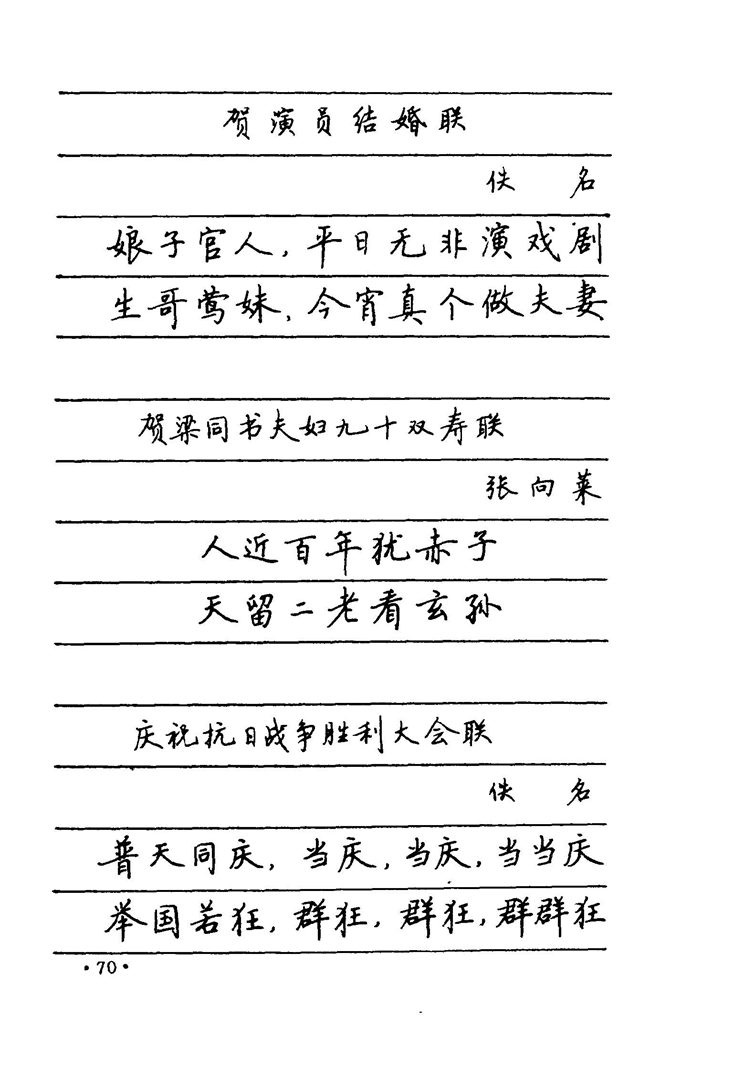 贺演员结婚联
佚 名
娘子官人，平日无非演戏剧
生哥莺妹，今宵真个做夫妻
贺梁同书夫妇九十双寿联
张向莱
人近百年犹赤子
天留二老看玄孙
庆祝抗日战争胜利大会联
佚 名
普天同庆，当庆，当庆，当当庆
举国若狂，群狂，群狂，群群狂
·70·